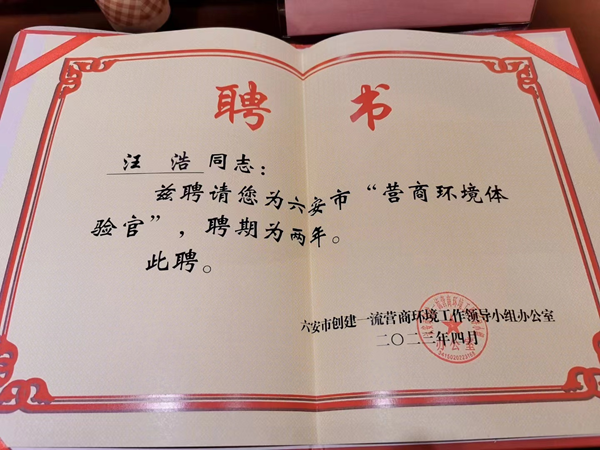 聘 书
汪 浩 同志：
兹聘请您为六安市“营商环境体
验官”，聘期为两年。
此聘。
六安市创建一流营商环境工作领导小组办公室
二〇二三年四月
办公室